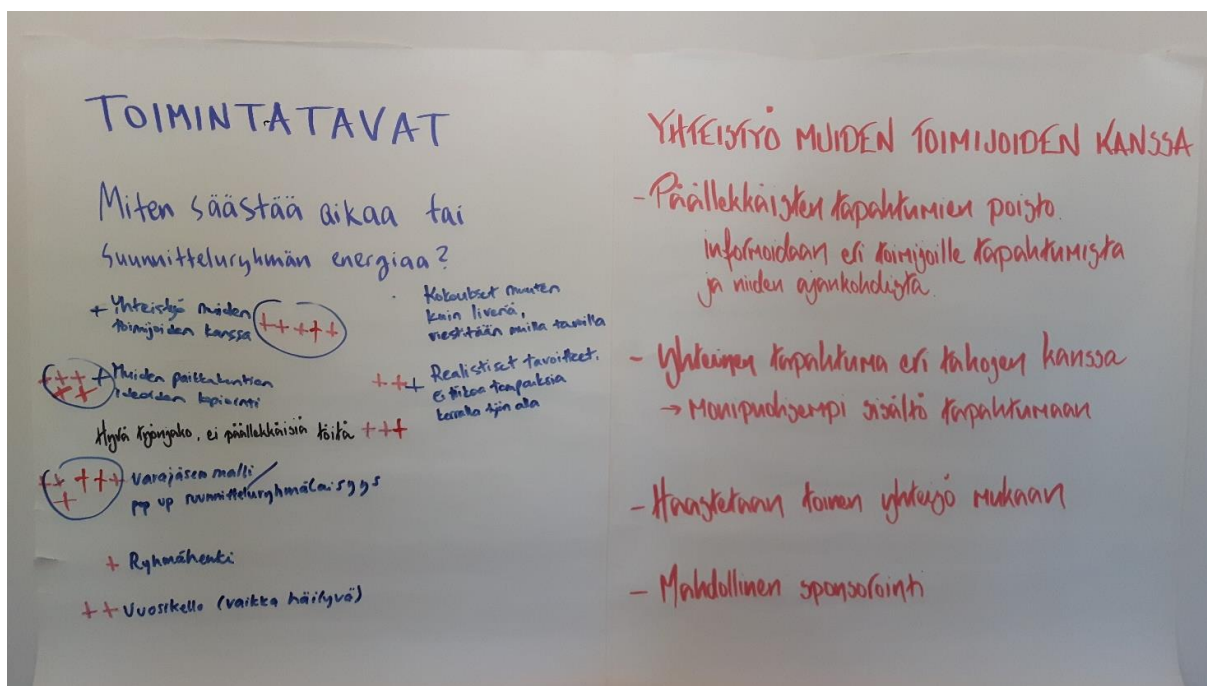 TOIMINTATAVAT
Miten säästää aikaa tai
suunnitteluryhmän energiaa?
+ Yhteistyö muiden
toimijoiden kanssa +++++
++++ Muiden paikkakuntien
++ ideoiden kopiointi
Hyvä työnjako, ei päällekkäisiä töitä +++
+++++ varajäsen malli/
+ pop up suunnitteluryhmäläisyys
+ Ryhmähenki
++ Vuosikello (vaikka häilyvä)
Kokoukset muuten
kuin livenä,
viestitään muilla tavoilla
+++ Realistiset tavoitteet.
ei liikaa tempauksia
kerralla työn alla
YHTEISTYÖ MUIDEN TOIMIJOIDEN KANSSA
- Päällekkäisten tapahtumien poisto.
informoidaan eri toimijoille tapahtumista
ja niiden ajankohdista.
- Yhteinen tapahtuma eri tahojen kanssa
→ Monipuolisempi sisältö tapahtumaan
- Haastetaan toinen yhteisö mukaan
- Mahdollinen sponsorointi